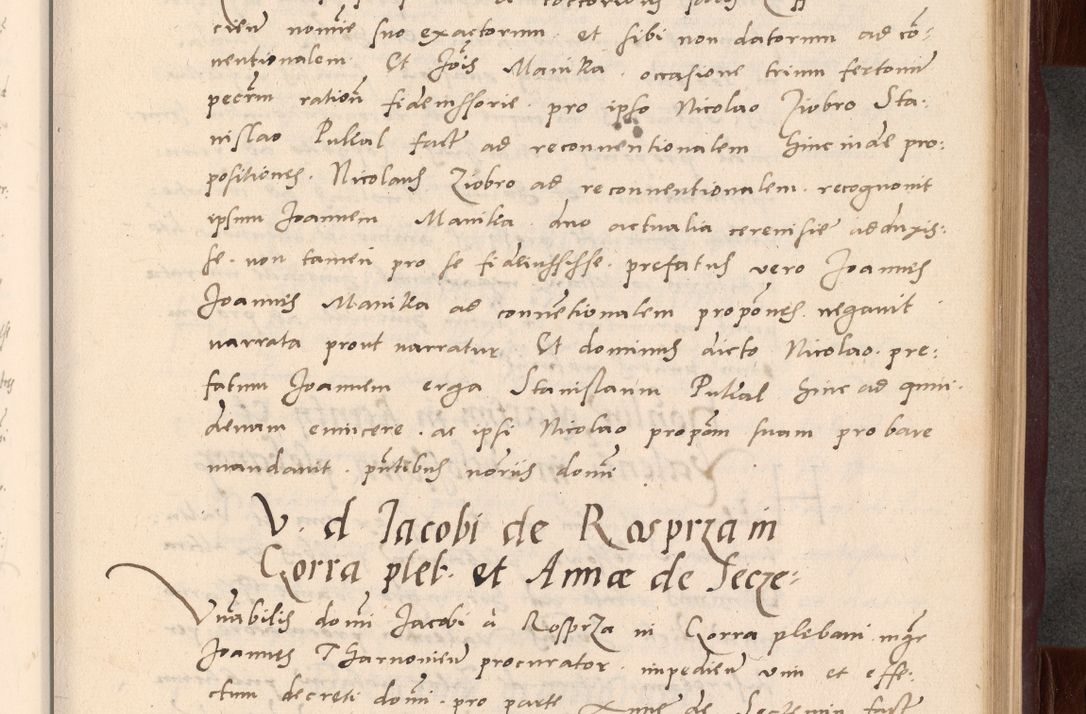 cien̄ nomīe suo exactorum et sibi non datorum ad cō-
uentionalem Et Jōis Manika occasione trium fertonū
pecūm ration̄ fideiussorie pro ipso Nicolao Ziobro Sta:
nislao Pultal fact̄ ad reconuentionalem hincinde pro:
positiones. Nicolaus Ziobro ad reconuentionalem recognouit
ipsum Joannem Manika duo actualia adduxis:
se. non tamen pro se fideiussisse prefatus vero Joannes
Joannis Manika ad conuētionalem propōnes. negauit
narrata prout narratur Et dominus dicto Nicolao. pre:
fatum Joannem erga Stanislaum Pultal hinc ad quin-
denam euincere. ac ipsi Nicolao propōm suam probare
mandauit. pn̄tibus notariis domī
V. d Jacobi de Rosprza in
Gorra pleb. et Annæ de Secze:
Vn̄abilis domī Jacobi à Rosprza in Gorra plebani mgr̄
Joannes Tharnouien̄ procurator. impedien̄ vim et effe:
ctum decreti domī. pro parte Anne de fact̄